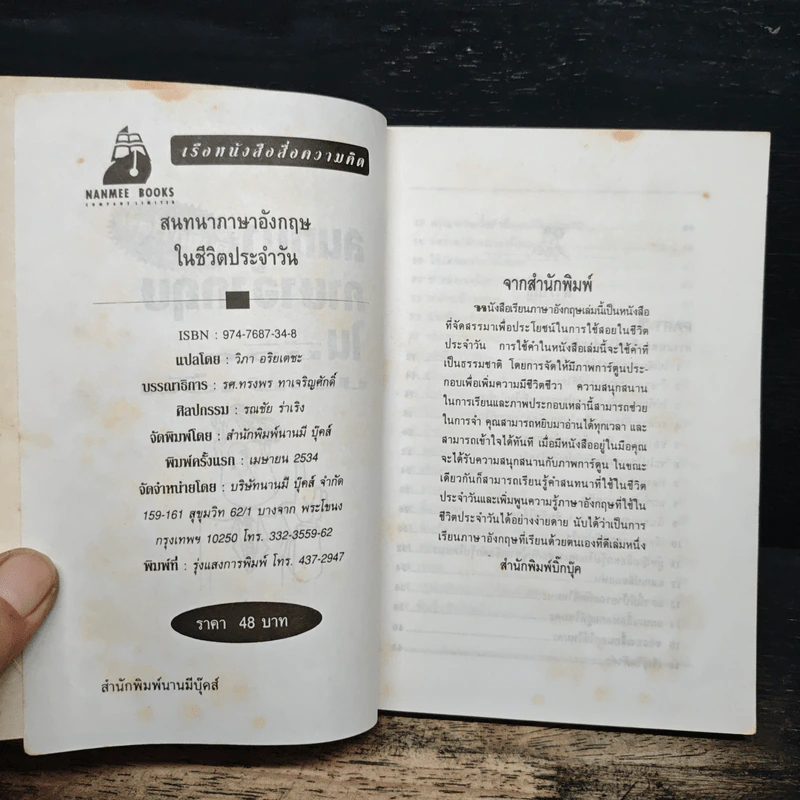 NANMEE BOOKS
COMPANY LIMITED
เรือหนังสือสื่อความคิด
สนทนาภาษาอังกฤษ
ในชีวิตประจำวัน
ISBN : 974-7687-34-8
แปลโดย : วิภา อริยเตชะ
บรรณาธิการ : รศ.ทรงพร ทาเจริญศักดิ์
ศิลปกรรม : รณชัย ร่าเริง
จัดพิมพ์โดย : สำนักพิมพ์นานมี บุ๊คส์
พิมพ์ครั้งแรก : เมษายน 2534
จัดจำหน่ายโดย : บริษัทนานมี บุ๊คส์ จำกัด
159-161 สุขุมวิท 62/1 บางจาก พระโขนง
กรุงเทพฯ 10250 โทร. 332-3559-62
พิมพ์ที่ : รุ่งแสงการพิมพ์ โทร. 437-2947
ราคา 48 บาท
สำนักพิมพ์นานมีบุ๊คส์
จากสำนักพิมพ์
หนังสือเรียนภาษาอังกฤษเล่มนี้เป็นหนังสือ
ที่จัดสรรมาเพื่อประโยชน์ในการใช้สอยในชีวิต
ประจำวัน การใช้คำในหนังสือเล่มนี้จะใช้คำที่
เป็นธรรมชาติ โดยการจัดให้มีภาพการ์ตูนประ-
กอบเพื่อเพิ่มความมีชีวิตชีวา ความสนุกสนาน
ในการเรียนและภาพประกอบเหล่านี้สามารถช่วย
ในการจำ คุณสามารถหยิบมาอ่านได้ทุกเวลา และ
สามารถเข้าใจได้ทันที เมื่อมีหนังสืออยู่ในมือคุณ
จะได้รับความสนุกสนานกับภาพการ์ตูน ในขณะ
เดียวกันก็สามารถเรียนรู้คำสนทนาที่ใช้ในชีวิต
ประจำวันและเพิ่มพูนความรู้ภาษาอังกฤษที่ใช้ใน
ชีวิตประจำวันได้อย่างง่ายดาย นับได้ว่าเป็นการ
เรียนภาษาอังกฤษที่เรียนด้วยตนเองที่ดีเล่มหนึ่ง
สำนักพิมพ์บิ๊กบุ๊ค